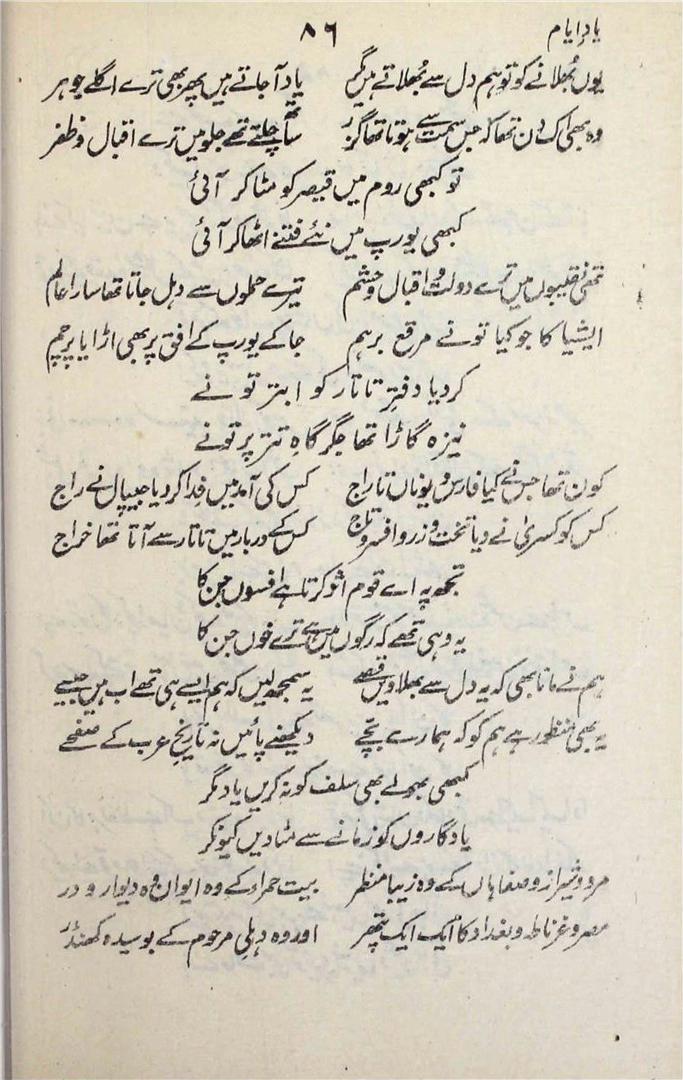 یادِ ایام ۸۶
یوں بُھلانے کو تو ہم دل سے بُھلاتے ہیں مگر یاد آجاتے ہیں پھر بھی ترے اگلے جوہر
وہ بھی اک دن تھا کہ جس سمت سے ہوتا تھا گزر ساتھ چلتے تھے جلو میں ترے اقبال و ظفر
تو کبھی روم میں قیصر کو مٹا کر آئی
کبھی یورپ میں نئے فتنے اٹھا کر آئی
تھی نقیبوں میں ترے دولت و اقبال و حشم تیرے حملوں سے دہل جاتا تھا سارا عالم
ایشیا کا جو کیا تونے مرقع برہم جا کے یورپ کے افق پر بھی اڑایا پرچم
کر دیا دفترِ تاتار کو ابتر تو نے
نیزہ گاڑا تھا جگر گاہِ تتر پر تونے
کون تھا جس نے کیا فارس و یوناں تاراج کس کی آمد میں فدا کر دیا جیپال نے راج
کس کو کسریٰ نے دیا تخت و زر و افسر و تاج کس کے دربار میں تاتار سے آتا تھا خراج
تجھ پہ اے قوم اثر کرتا ہے افسوں جن کا
یہ وہی تھے کہ رگوں میں ہے ترے خوں جن کا
ہم نے مانا بھی کہ یہ دل سے بھلا دیں قصے یہ سمجھ لیں کہ ہم ایسے ہی تھے اب ہیں جیسے
یہ بھی منظور ہے ہم کو کہ ہمارے بچے دیکھنے پائیں نہ تاریخِ عرب کے صفحے
کبھی بھولے بھی سلف کو نہ کریں یاد مگر
یادگاروں کو زمانے سے مٹادیں کیونکر
مرو و شیراز و صفاہاں کے وہ زیبا منظر بیت حمراء کے وہ ایوان وہ دیوار و در
مصر و غرناطہ و بغداد کا ایک ایک پتھر اور وہ دہلی مرحوم کے بوسیدہ کھنڈر